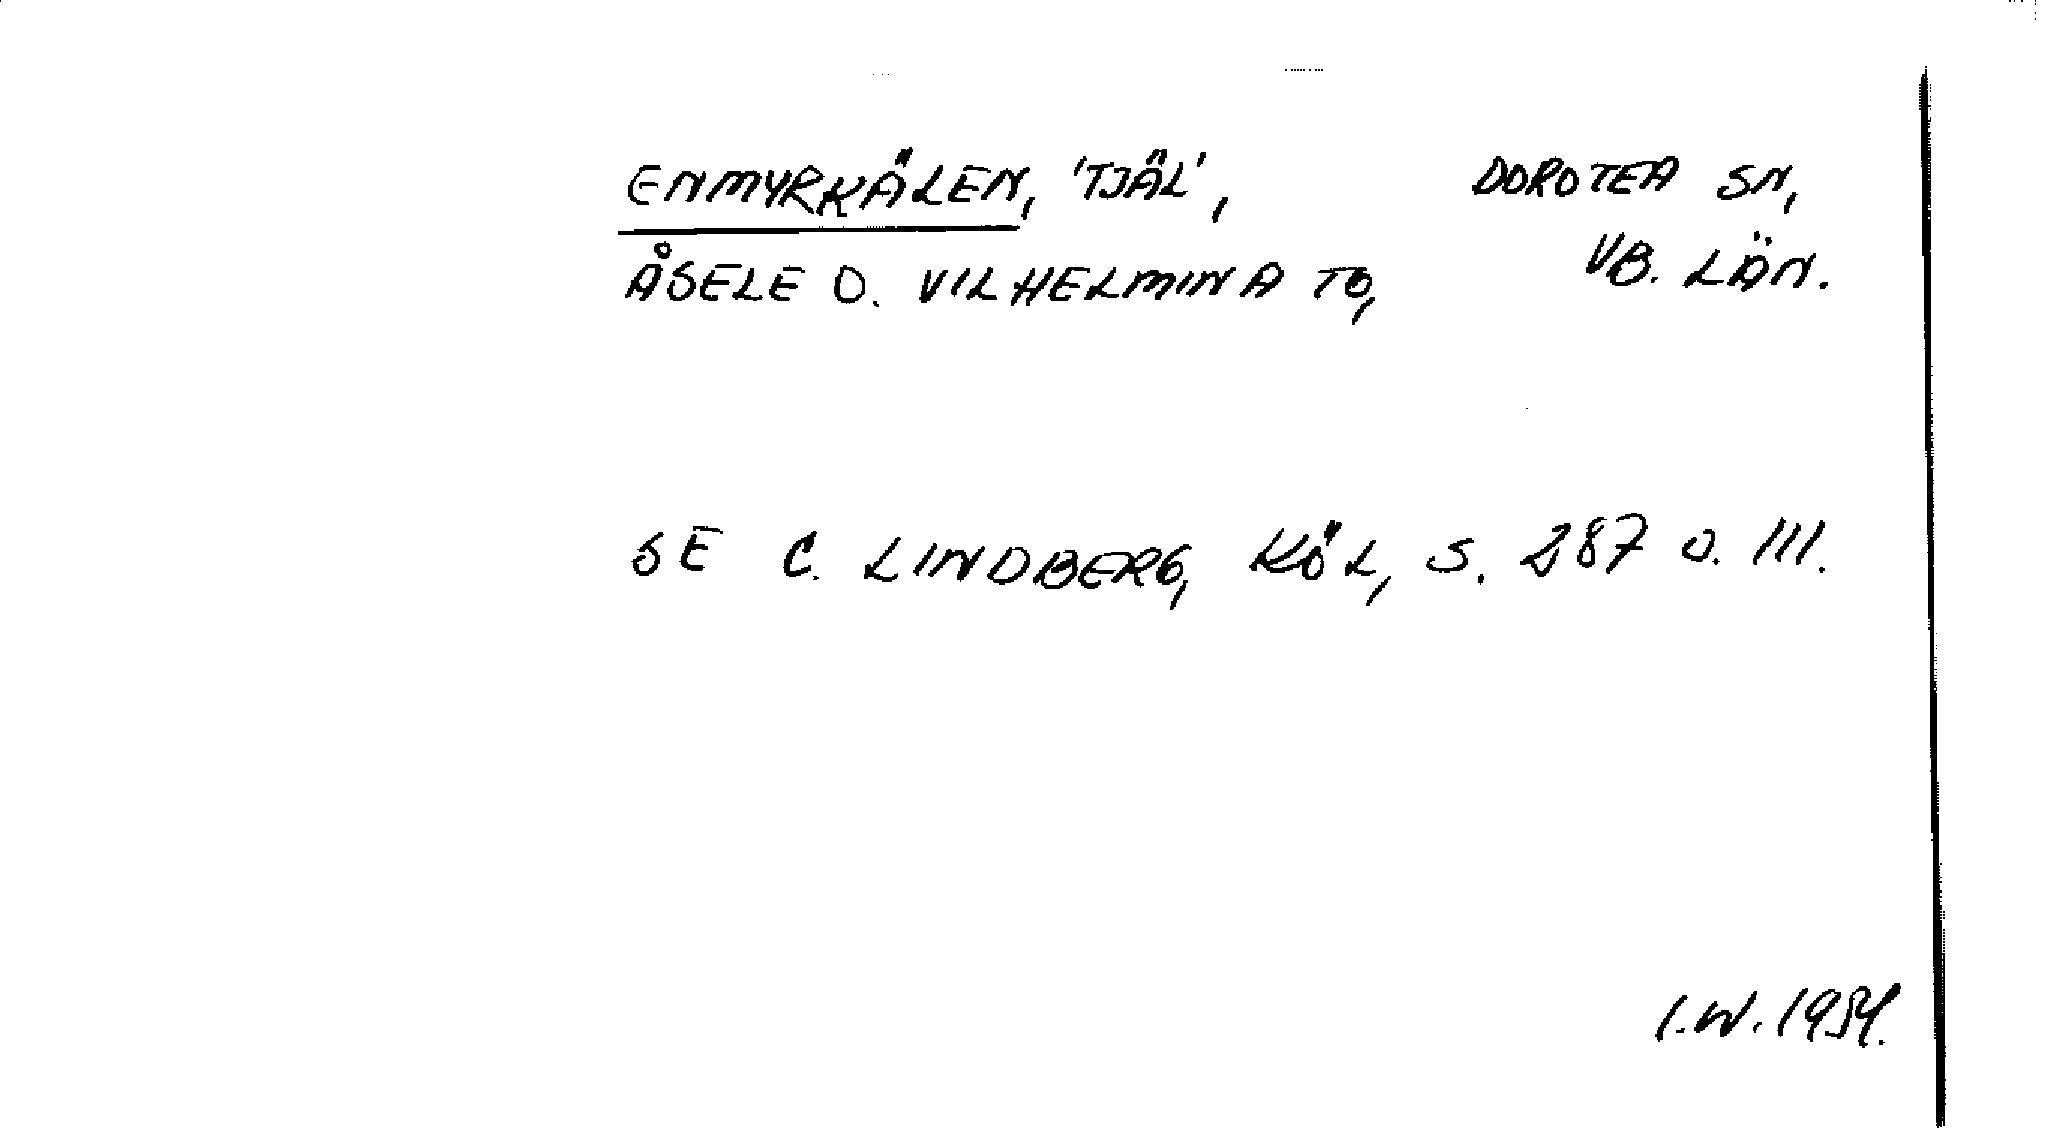 ENMYRKÄLEN, 'TJÄL', DOROTEA SN,
ÅSELE O. VILHELMINA TG, VB. LÄN.
SE C. LINDBERG, KÖL, S. 287 O. 111.
I.W. 1954.